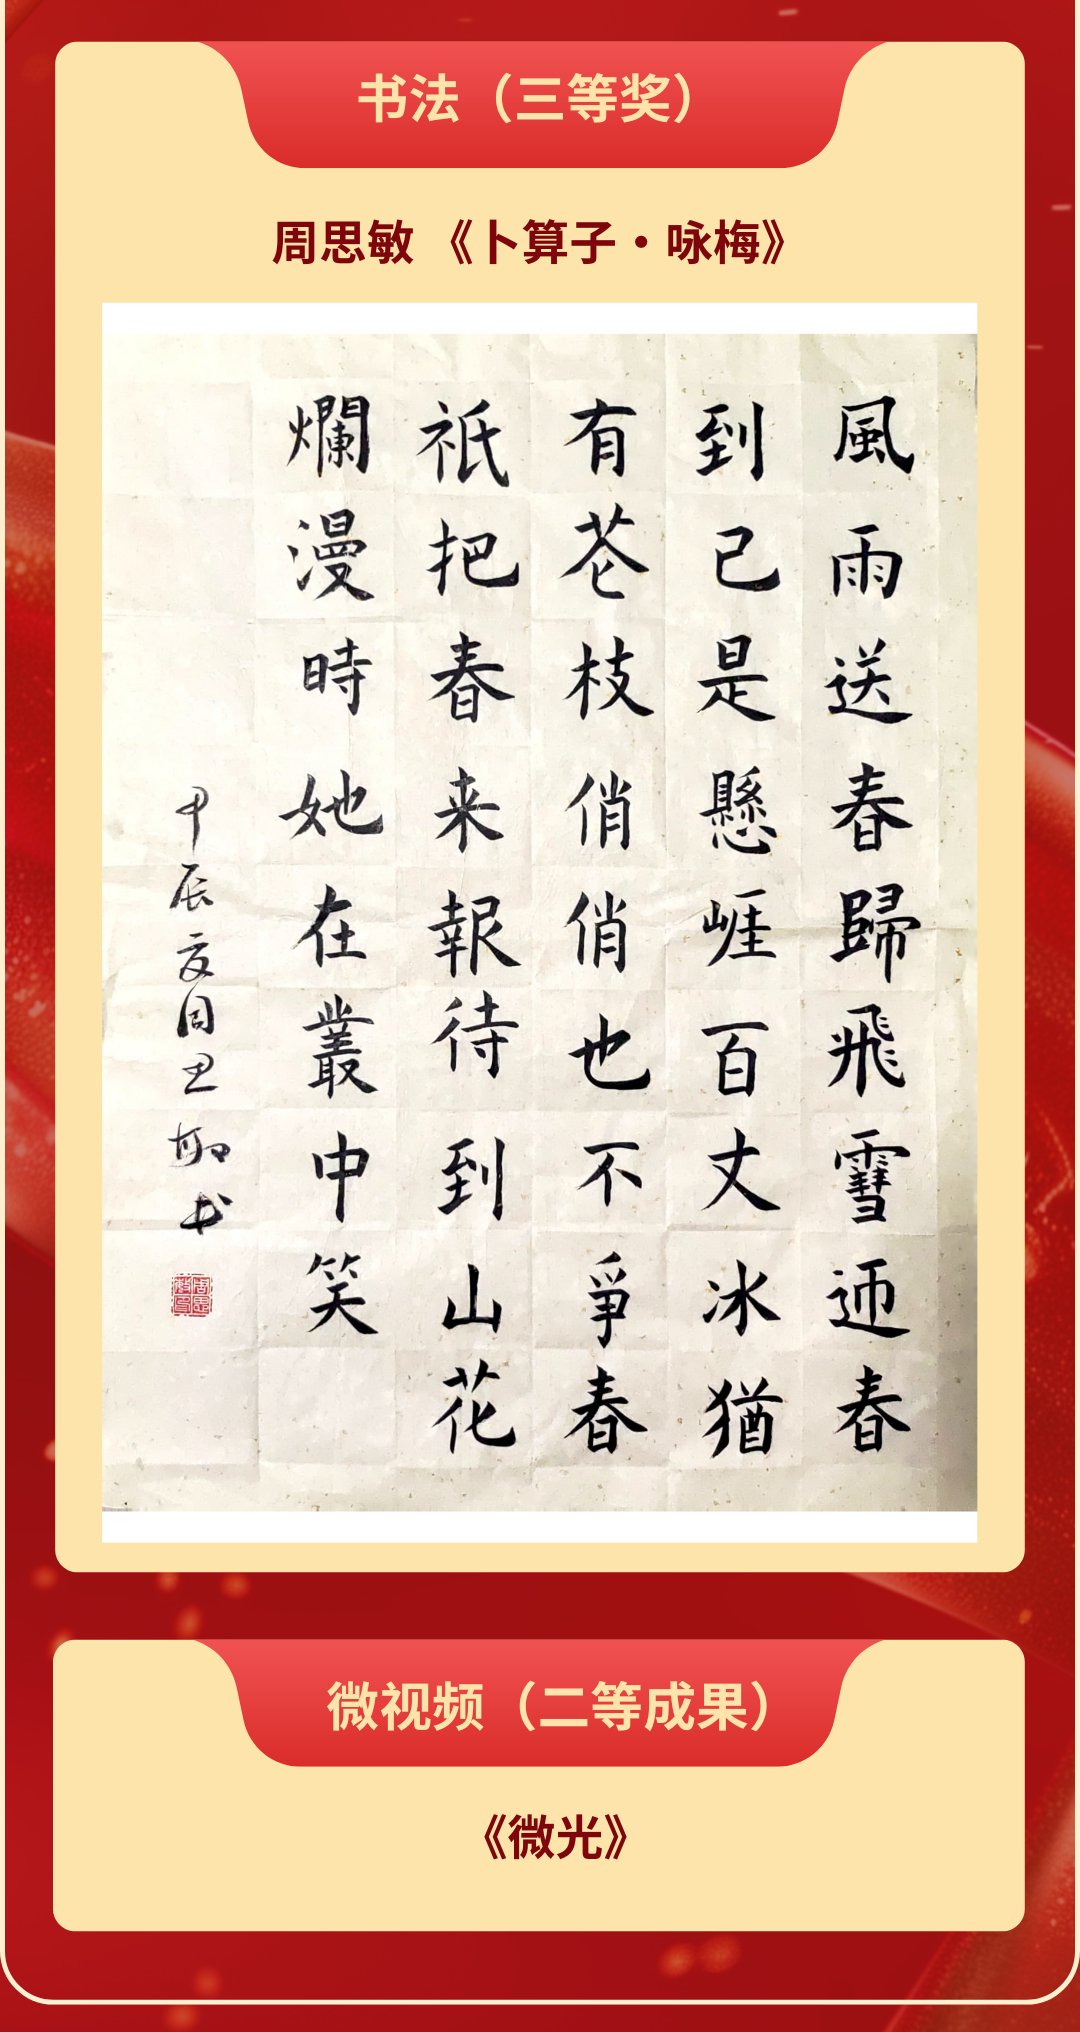 书法（三等奖）
周思敏 《卜算子·咏梅》
風雨送春歸飛雪迊春
到已是懸崖百丈冰猶
有芲枝俏俏也不爭春
祇把春来報待到山花
爛漫時她在叢中笑
甲辰夏周思敏书
微视频（二等成果）
《微光》